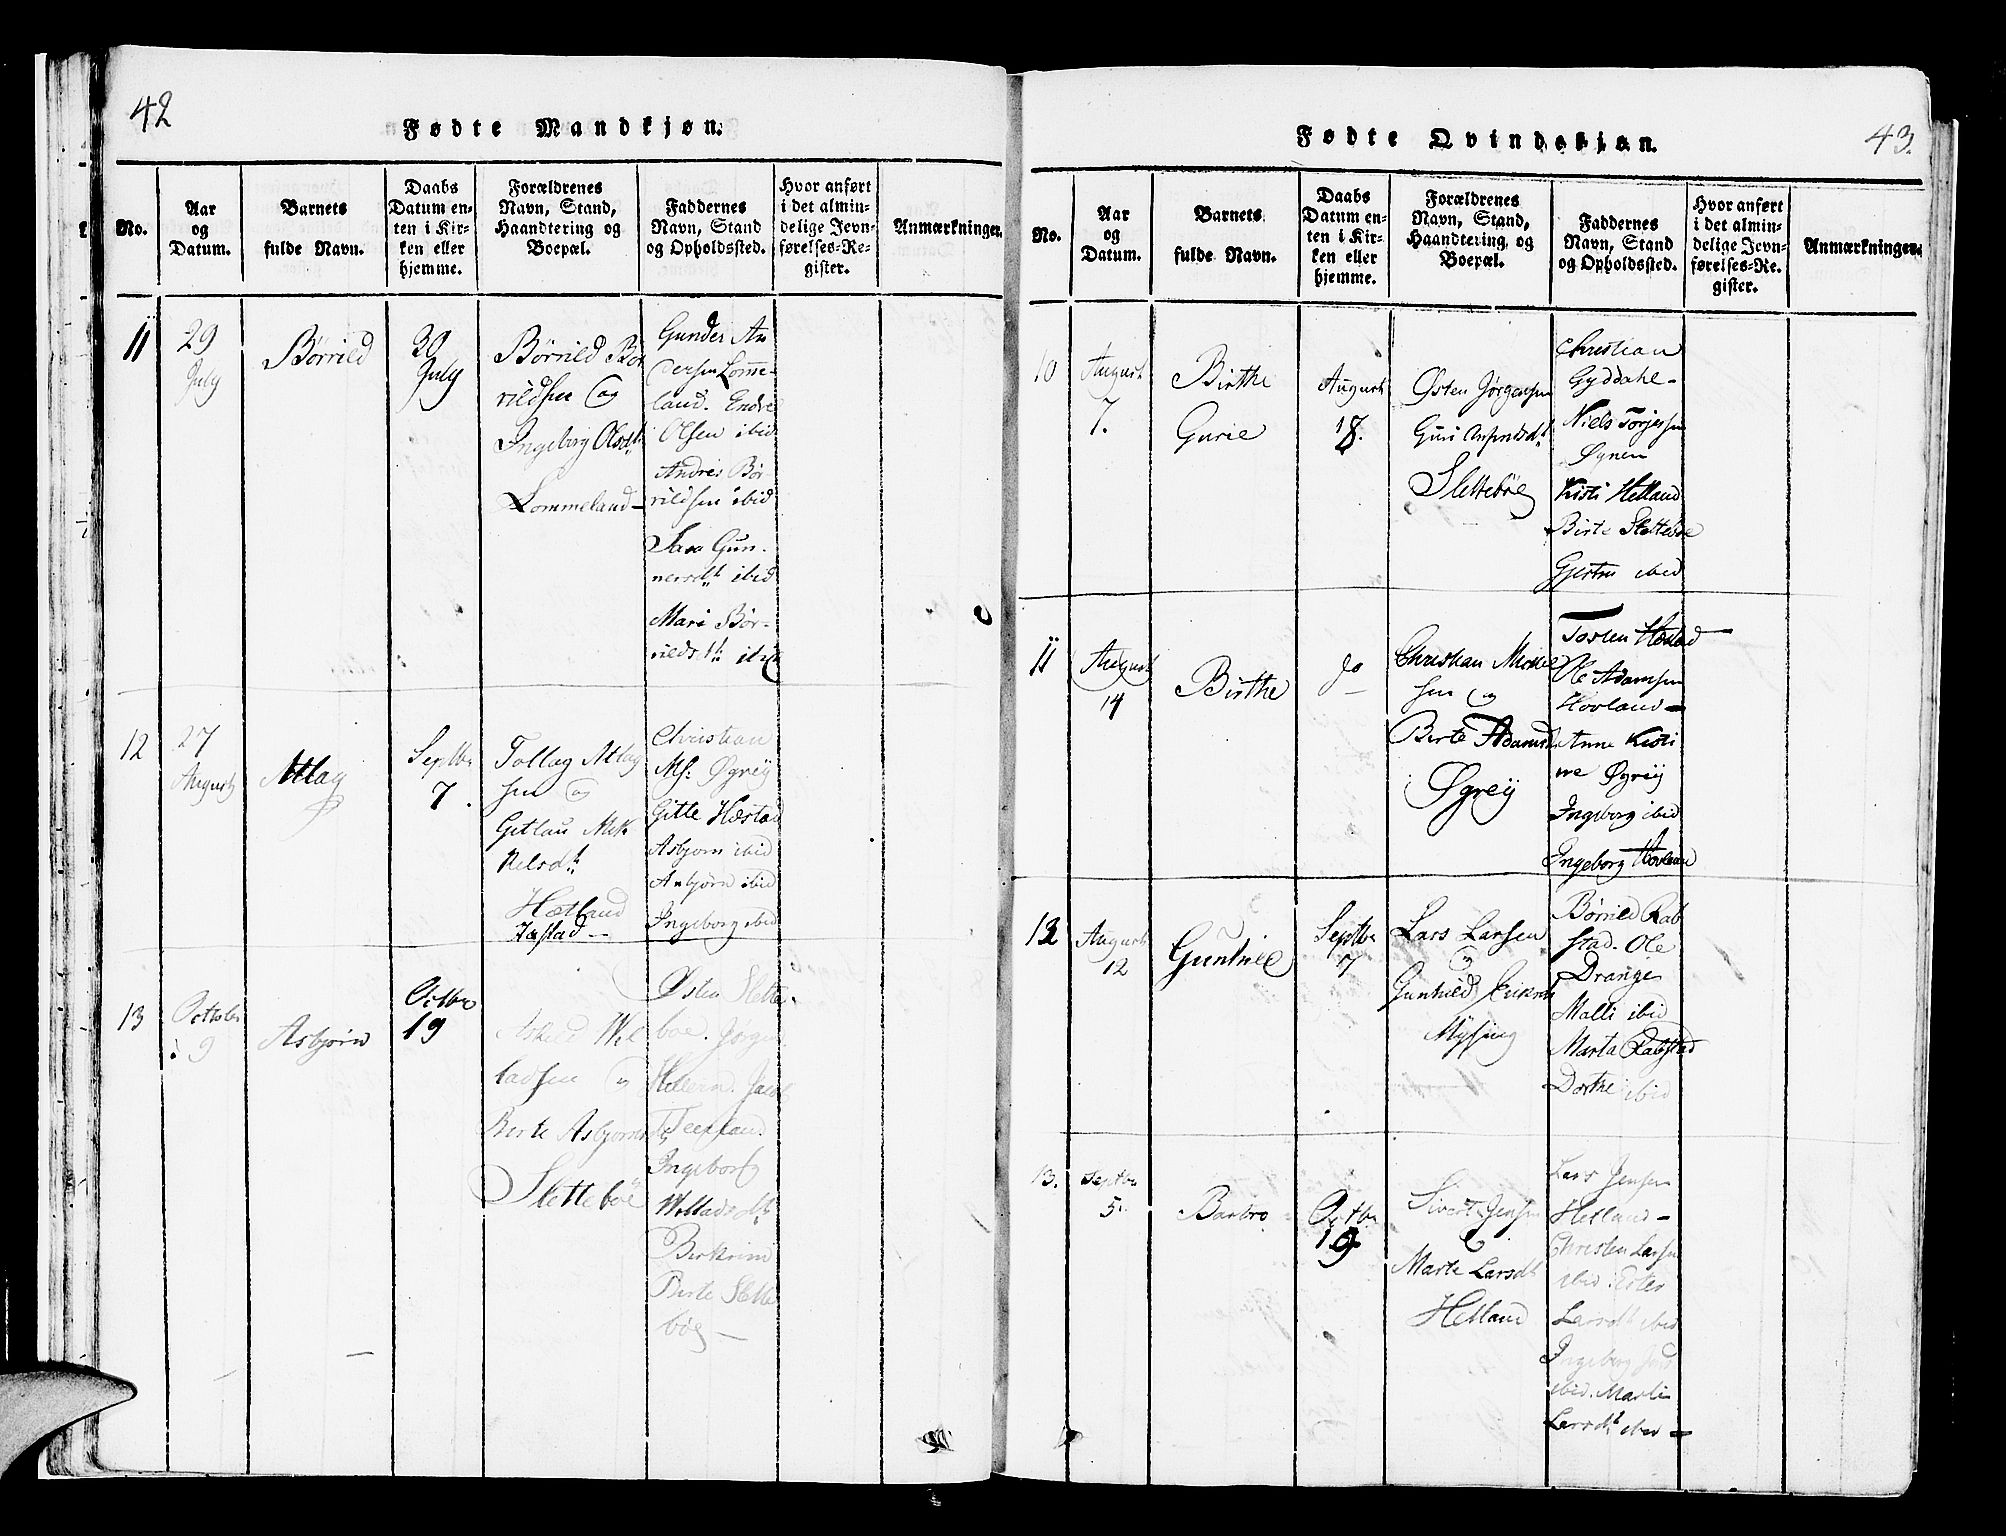 42
Fødte Mandkjøn.
No.
Aar
og
Datum.
Barnets
fulde Navn.
Daabs
Datum en-
ten i Kir-
ken eller
hjemme.
Forældrenes
Navn, Stand,
Haandtering og
Boepæl.
Faddernes
Navn, Stand
og Opholdssted.
Hvor anført
i det almin-
delige Jevn-
førelses-Re-
gister.
Anmærkninger.
11
29
July
Børrild
30
July
Børrild Bør
rildsen og
Ingeborg Olsdt
Lommeland
Gunder An
dersen Lomme-
land. Endre
Olsen ibid
Andres Bør
rildsen ibid
Sara Gun-
nersdt ibid
Mari Bør-
rildsdt ibid
12
27
August
Atlag
Septbr
7.
Tollag Atlag
sen og
Gitlau Mik
kelsdt
Hetland
Christian
Ms: Øgreÿ
Gitle Hæstad
Asbjørn ibid
Anbjørn ibid
Ingeborg ibid
13
Octobr
9
Asbjørn
Octbr
19
Askild Wil
ladsen og
Berte Asbjørns
Slettebøe
Østen Slette-
boe. Jørgen
Hellern. Jacob
Teepland.
Ingeborg
Willadsdt
Birkrim
Birte Slette
bøe
43.
Fødte Qvindekjøn.
No.
Aar
og
Datum.
Barnets
fulde Navn.
Daabs
Datum en-
ten i Kir-
ken eller
hjemme.
Forældrenes
Navn, Stand,
Haandtering og
Boepæl.
Faddernes
Navn, Stand
og Opholdssted.
Hvor anført
i det almin-
delige Jevn-
førelses-Re-
gister.
Anmærkninger.
10
August
7.
Birthe
Gurie
August
18.
Østen Jørgensen
Guri
Slettebøe
Christian
Gyddahl-
Niels Torjesen
Øgnen
Kisti Helland
Birte Slettebøe
Gjestru ibid
11
August
14
Birthe
do
Christian Mikkel
sen og
Berte Adamsd
Øgreÿ
Torsten Hæstad
Ole Adamsen
Hovland
Anne Kisti
ne Øgreÿ
Ingeborg ibid
Ingeborg Hovland
12
August
12
Guntvee
Septbr
7
Lars Larsen
og
Gunhild Eriksd
Mÿsing
Børrild Rab
stad. Ole
Drange
Malli ibid
Marta Rabstad
Dorthe ibid
13.
Septbr
5.
Barbro
Octbr
19
Sivert Jensen
og
Marte Larsdt
Hetland
Lars Jensen
Hetland
Christen Larsen
ibid
Larsdt ibid
Ingeborg Jens
ibid. Marti
Larsdt ibid